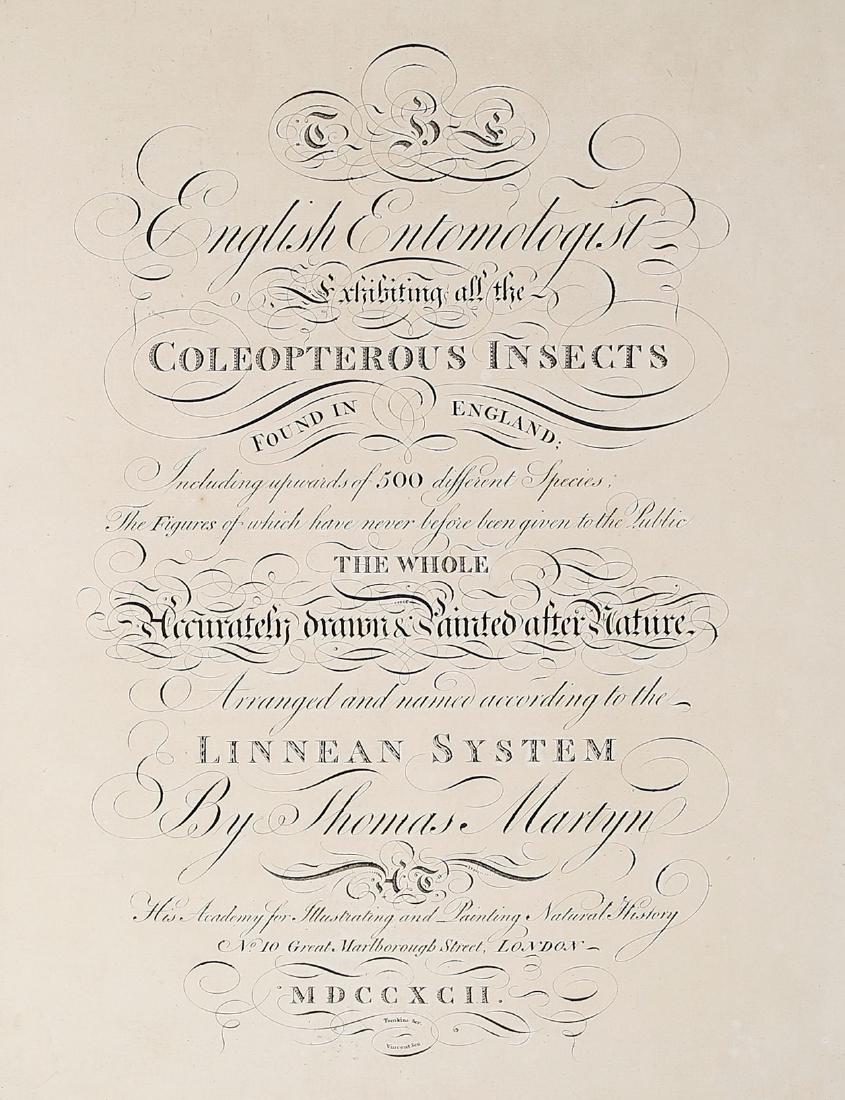 THE
English Entomologist
Exhibiting all the
COLEOPTEROUS INSECTS
FOUND IN ENGLAND;
Including upwards of 500 different Species;
The Figures of which have never before been given to the Public
THE WHOLE
Accurately drawn & Painted after Nature.
Arranged and named according to the
LINNEAN SYSTEM
By Thomas Martyn
AT
His Academy for Illustrating and Painting Natural History
No 10 Great Marlborough Street, LONDON
MDCCXCII.
Tomkins Scr.
Vincent Scu